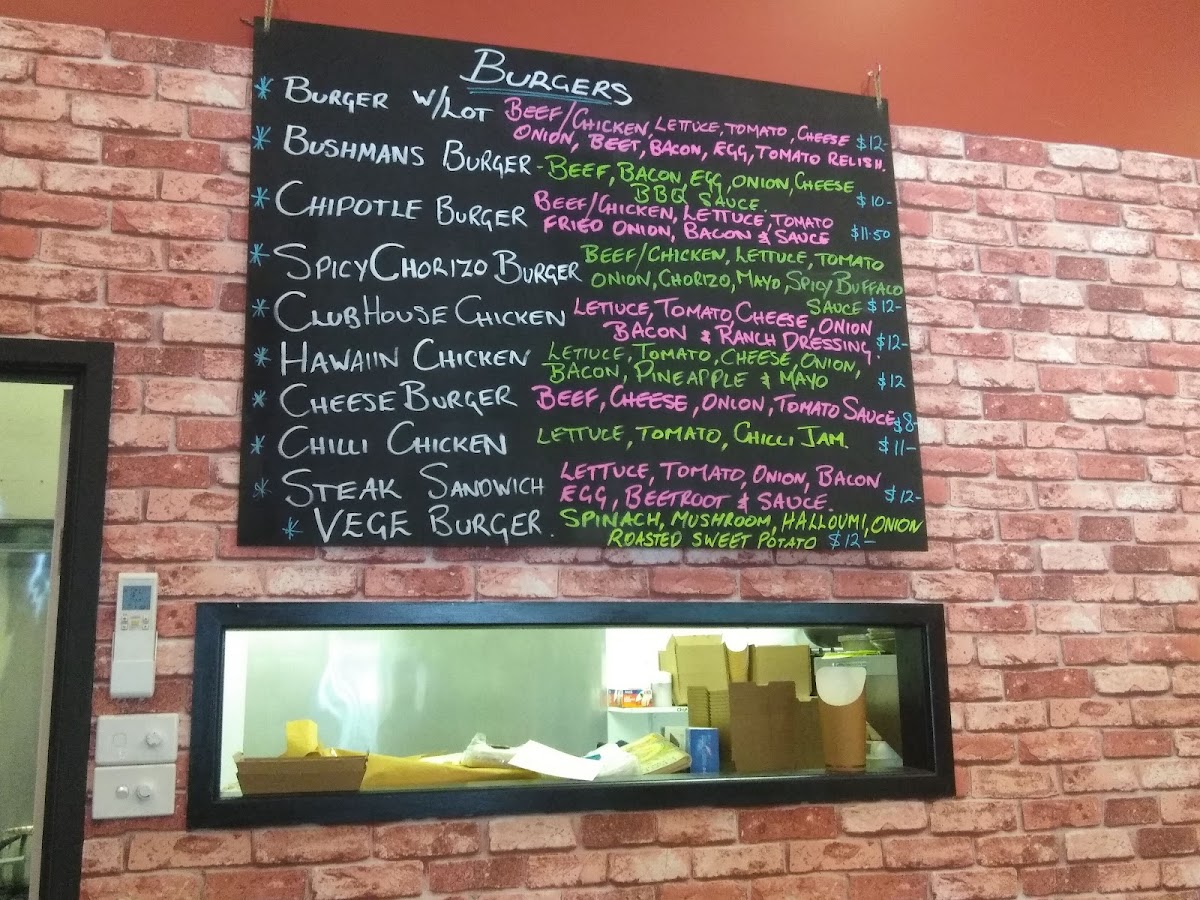 BURGERS
* BURGER W/LOT BEEF/CHICKEN, LETTUCE, TOMATO, CHEESE $12-
ONION, BEET, BACON, EGG, TOMATO RELISH.
* BUSHMANS BURGER - BEEF, BACON, EGG, ONION, CHEESE
BBQ SAUCE. $10-
* CHIPOTLE BURGER BEEF/CHICKEN, LETTUCE, TOMATO
FRIED ONION, BACON & SAUCE $11.50
* SPICY CHORIZO BURGER BEEF/CHICKEN, LETTUCE, TOMATO
ONION, CHORIZO, MAYO, SPICY BUFFALO
SAUCE $12-
* CLUBHOUSE CHICKEN LETTUCE, TOMATO, CHEESE, ONION
BACON & RANCH DRESSING. $12-
* HAWAIIN CHICKEN LETTUCE, TOMATO, CHEESE, ONION,
BACON, PINEAPPLE & MAYO $12
* CHEESE BURGER BEEF, CHEESE, ONION, TOMATO SAUCE $8-
* CHILLI CHICKEN LETTUCE, TOMATO, CHILLI JAM. $11-
* STEAK SANDWICH LETTUCE, TOMATO, ONION, BACON
EGG, BEETROOT & SAUCE. $12-
* VEGE BURGER. SPINACH, MUSHROOM, HALLOUMI, ONION
ROASTED SWEET POTATO $12-